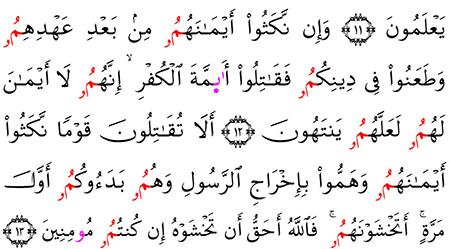 يَعْلَمُونَ ١١ وَإِن نَّكَثُوٓا۟ أَيْمَـٰنَهُمُۥ مِنۢ بَعْدِ عَهْدِهِمُۥ
وَطَعَنُوا۟ فِى دِينِكُمُۥ فَقَـٰتِلُوٓا۟ أَى۪مَّةَ ٱلْكُفْرِ إِنَّهُمُۥ لَآ أَيْمَـٰنَ
لَهُمُۥ لَعَلَّهُمُۥ يَنتَهُونَ ١٢ أَلَا تُقَـٰتِلُونَ قَوْمًا نَّكَثُوٓا۟
أَيْمَـٰنَهُمُۥ وَهَمُّوا۟ بِإِخْرَاجِ ٱلرَّسُولِ وَهُمُۥ بَدَءُوكُمُۥ أَوَّلَ
مَرَّةٍ أَتَخْشَوْنَهُمُۥ فَٱللَّهُ أَحَقُّ أَن تَخْشَوْهُ إِن كُنتُمُۥ مُومِنِينَ ١٣